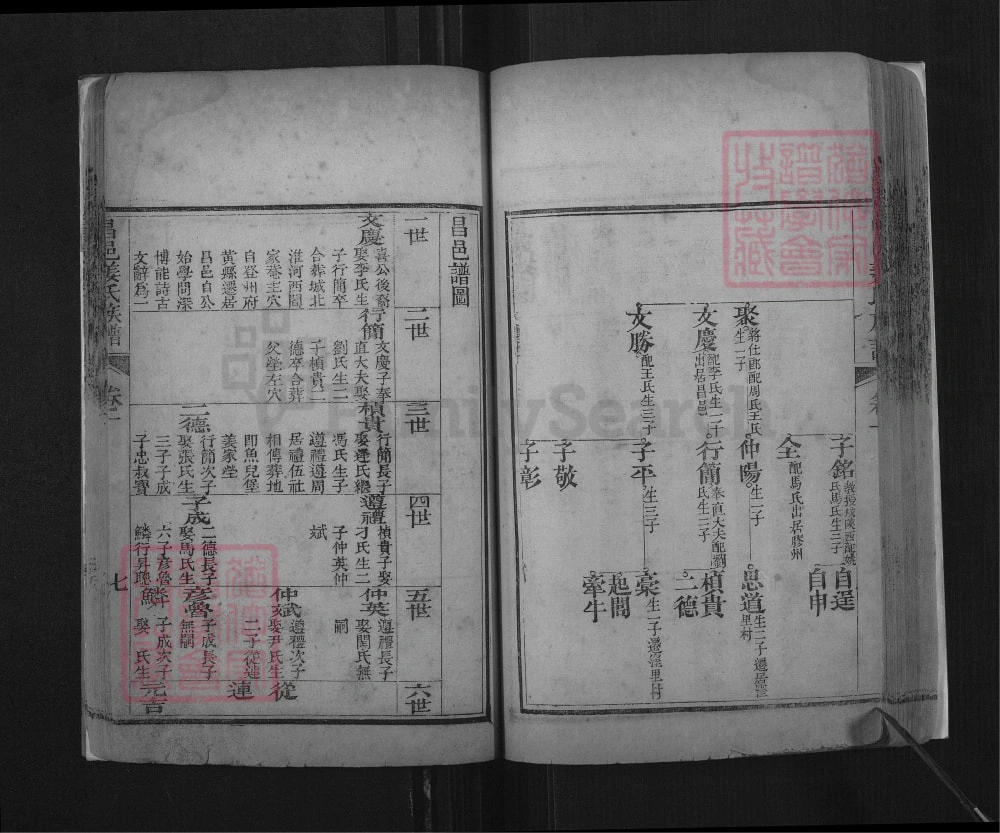 子銘
自逞
自申
全 配馬氏出居膠州
聚 將仕郎配周氏王氏生一子
仲陽 生一子
思道 生二子遷居涇里村
文慶 配李氏生一子出居昌邑
行簡 奉直大夫配劉氏生二子
楨貴
二德
文勝 配王氏生三子
子平 生三子
棠 生一子遷涇里村
起間
牽牛
子敬
子彰
昌邑譜圖
一世
二世
三世
四世
五世
六世
文慶 喜公後裔
娶李氏生
子行簡卒
合葬城北
淮河西閻
家菴主穴
自登州府
黃縣遷居
昌邑自公
始學問深
博能詩古
文辭為一
行簡 文慶子奉
直大夫娶
劉氏生二
子楨貴二
德卒合葬
父塋左穴
楨貴 行簡長子
娶逄氏繼
馮氏生子
遵禮遵周
居禮伍社
相傳葬地
即魚兒堡
姜家塋
二德 行簡次子
娶張氏生
三子子成
子忠叔寶
遵禮 楨貴子娶
刁氏生二
子仲英仲
斌
子成 二德長子
娶馬氏生
六子彥魯
鱗行昇聰
仲英 遵禮長子
娶閻氏無
嗣
仲斌 遵禮次子
娶尹氏生
二子從連
彥魯 子成長子
無嗣
鱗 子成次子
娶 氏生
從
連
元吉
昌邑姜氏族譜
卷一
七
FamilySearch